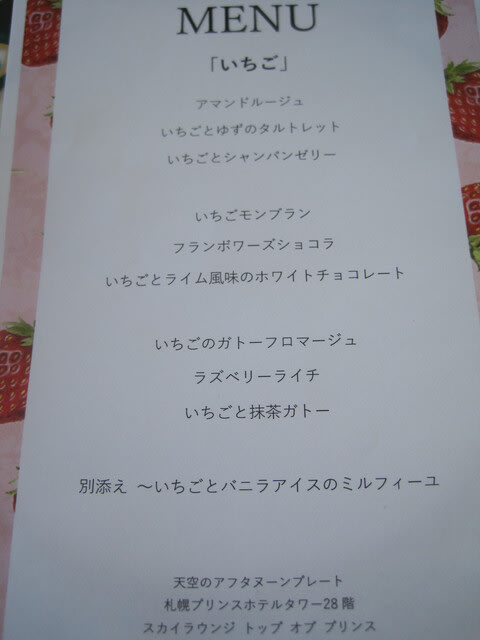 MENU
「いちご」
アマンドルージュ
いちごとゆずのタルトレット
いちごとシャンパンゼリー
いちごモンブラン
フランボワーズショコラ
いちごとライム風味のホワイトチョコレート
いちごのガトーフロマージュ
ラズベリーライチ
いちごと抹茶ガトー
別添え ～いちごとバニラアイスのミルフィーユ
天空のアフタヌーンプレート
札幌プリンスホテルタワー28階
スカイラウンジ トップ オブ プリンス